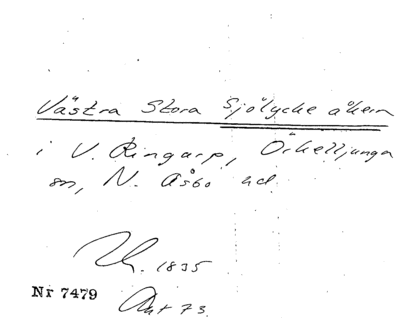 Västra Stora Sjölycke åkern
i V. Ringarp, Örkelljunga
sn, N. Åsbo hd
1835
Nr 7479
Akt 73.